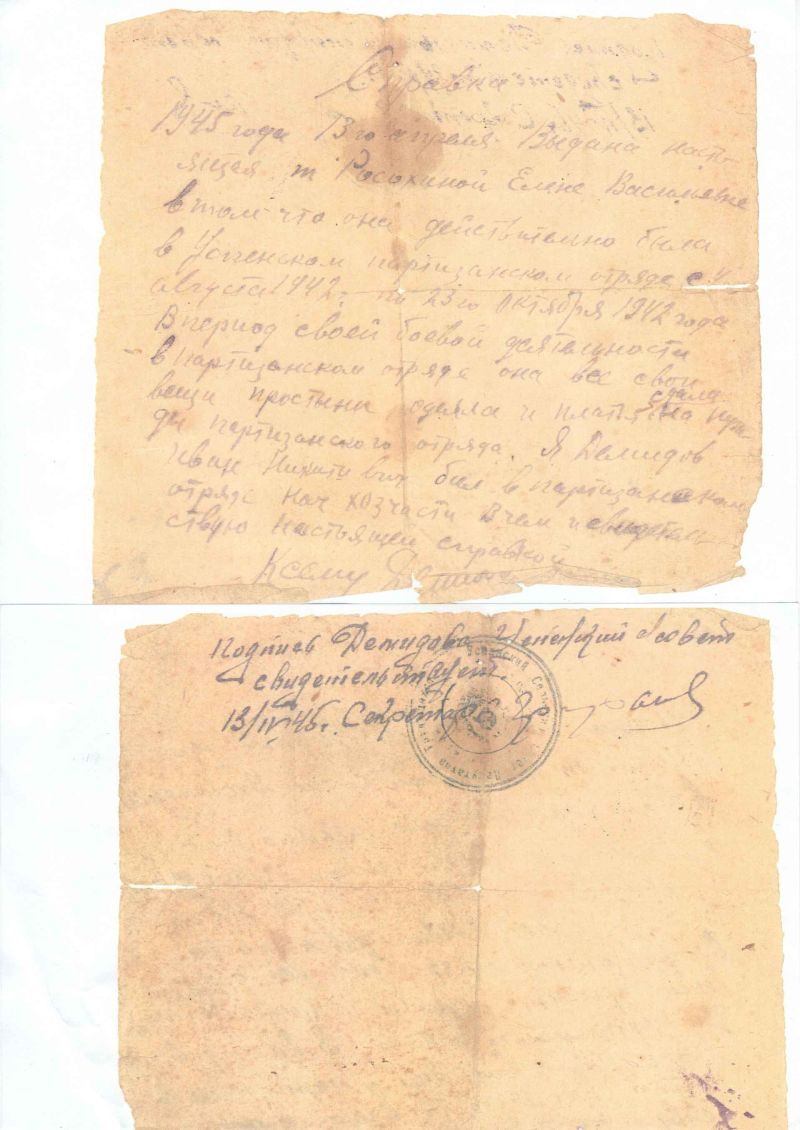 Справка
1945 года 13го апреля Выдана наст-
ящая т Росохиной Елене Васильевне
в том что она действительно была
в Успенском партизанском отряде с 4
августа 1942г по 23го октября 1942 года
В период своей боевой деятельности
в партизанском отряде она все свои
сдала
вещи простыни одеяла и платья на нуж-
ды партизанского отряда. Я Демидов
Иван Никитивич был в партизанском
отряде нач хозчасти В чем и свидетель-
ствую настоящей справкой
К сему
Подпись Демидова Успенский с/совет
свидетельствует.
13/IV 45г. Секретарь